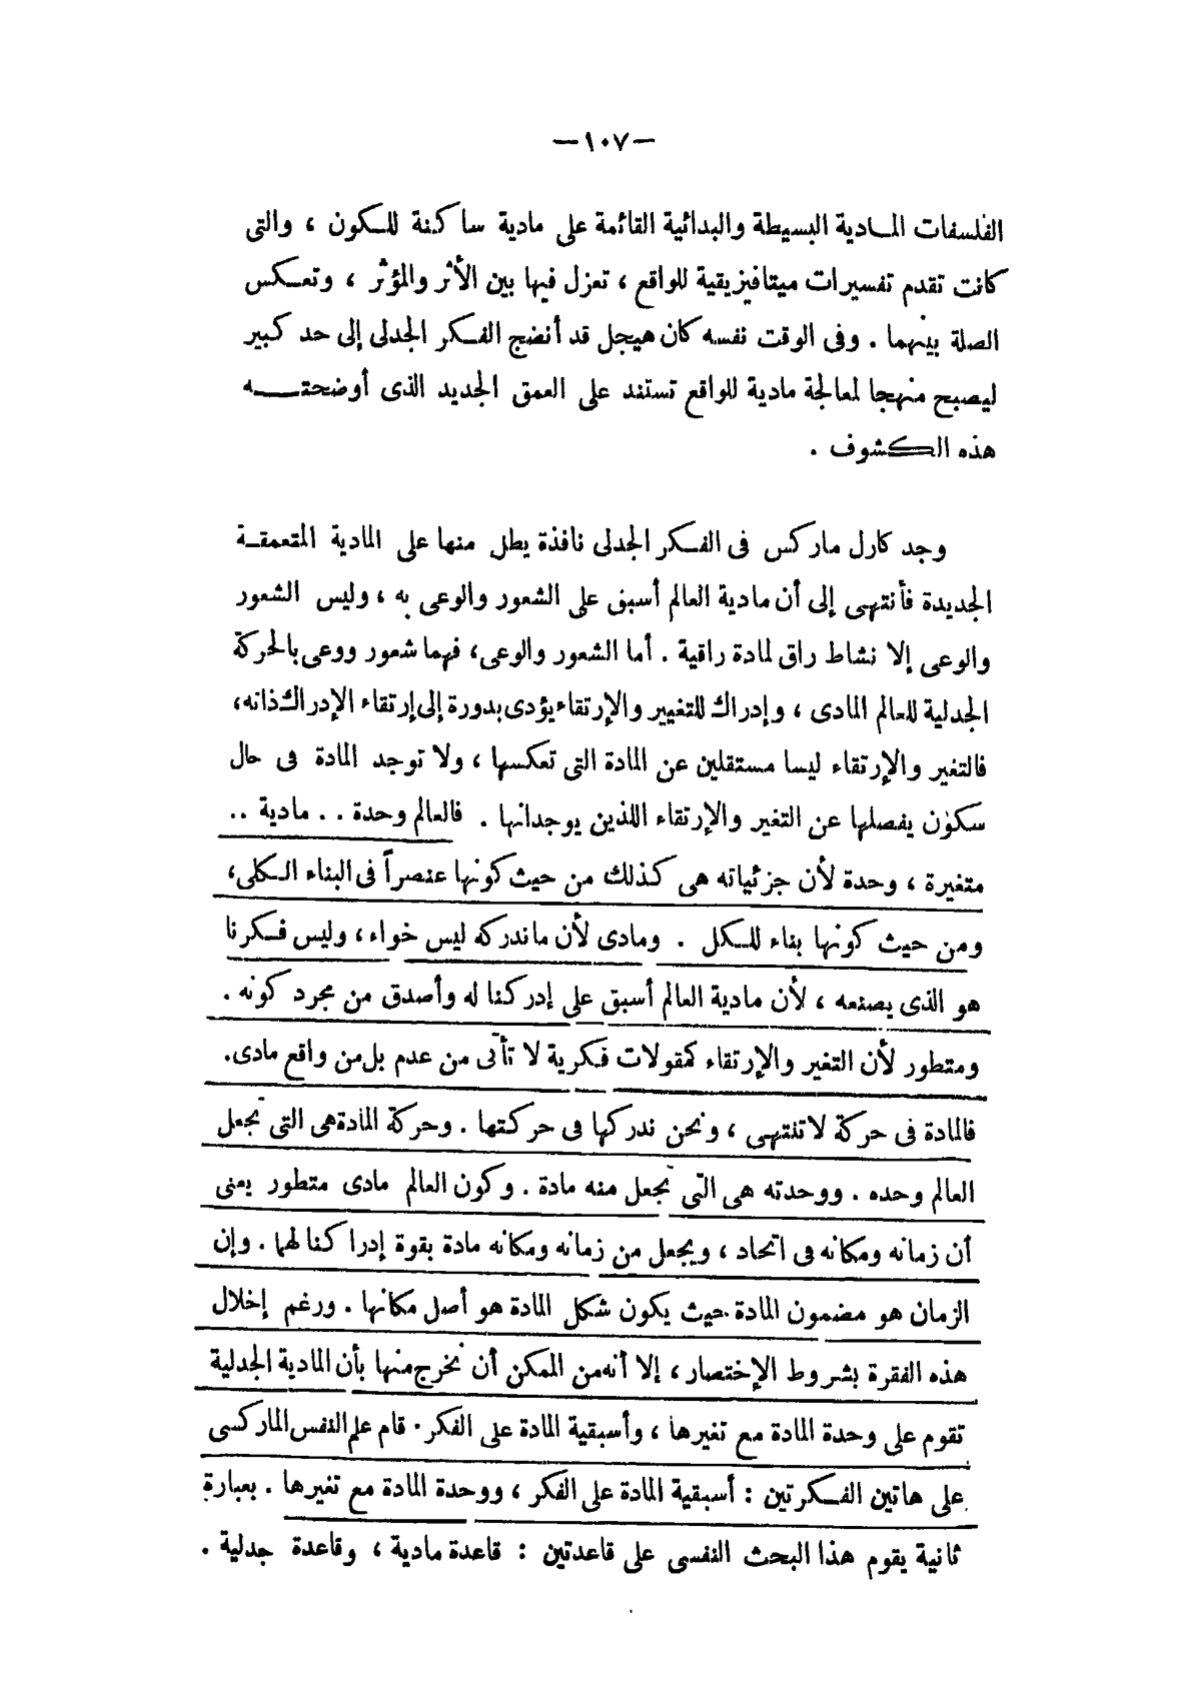 —١٠٧—
الفلسفات المادية البسيطة والبدائية القائمة على مادية ساكنة للكون ، والتى
كانت تقدم تفسيرات ميتافيزيقية للواقع ، تعزل فيها بين الأثر والمؤثر ، وتعكس
الصلة بينهما . وفى الوقت نفسه كان هيجل قد أنضج الفكر الجدلى إلى حد كبير
ليصبح منهجا لمعالجة مادية للواقع تستند على العمق الجديد الذى أوضحته
هذه الكشوف .
وجد كارل ماركس فى الفكر الجدلى نافذة يطل منها على المادية المتعمقة
الجديدة فأنتهى إلى أن مادية العالم أسبق على الشعور والوعى به ، وليس الشعور
والوعى إلا نشاط راق لمادة راقية . أما الشعور والوعى، فهما شعور ووعى بالحركة
الجدلية للعالم المادى ، وإدراك للتغيير والإرتقاء يؤدى بدورة إلى إرتقاء الإدراك ذاته،
فالتغير والإرتقاء ليسا مستقلين عن المادة التى تعكسها ، ولا توجد المادة فى حال
سكون يفصلها عن التغير والإرتقاء اللذين يوجدانها . فالعالم وحدة . . مادية ..
متغيرة ، وحدة لأن جزئياته هى كذلك من حيث كونها عنصراً فى البناء الكلى،
ومن حيث كونها بناء للكل . ومادى لأن ماندركه ليس خواء، وليس فكرنا
هو الذى يصنعه ، لأن مادية العالم أسبق على إدركنا له وأصدق من مجرد كونه .
ومتطور لأن التغير والإرتقاء كمقولات فكرية لا تأتى من عدم بل من واقع مادى.
فالمادة فى حركة لاتنتهى ، ونحن ندركها فى حركتها . وحركة المادة هى التى تجعل
العالم وحده . ووحدته هى التى تجعل منه مادة . وكون العالم مادى متطور يعنى
أن زمانه ومكانه فى اتحاد ، ويجعل من زمانه ومكانه مادة بقوة إدراكنا لهما . وإن
الزمان هو مضمون المادة حيث يكون شكل المادة هو أصل مكانها . ورغم إخلال
هذه الفقرة بشروط الإختصار، إلا أنه من الممكن أن نخرج منها بأن المادية الجدلية
تقوم على وحدة المادة مع تغيرها ، وأسبقية المادة على الفكر . قام علم النفس الماركسى
على هاتين الفكرتين : أسبقية المادة على الفكر ، ووحدة المادة مع تغيرها . بعبارة
ثانية يقوم هذا البحث النفسى على قاعدتين : قاعدة مادية ، وقاعدة جدلية .